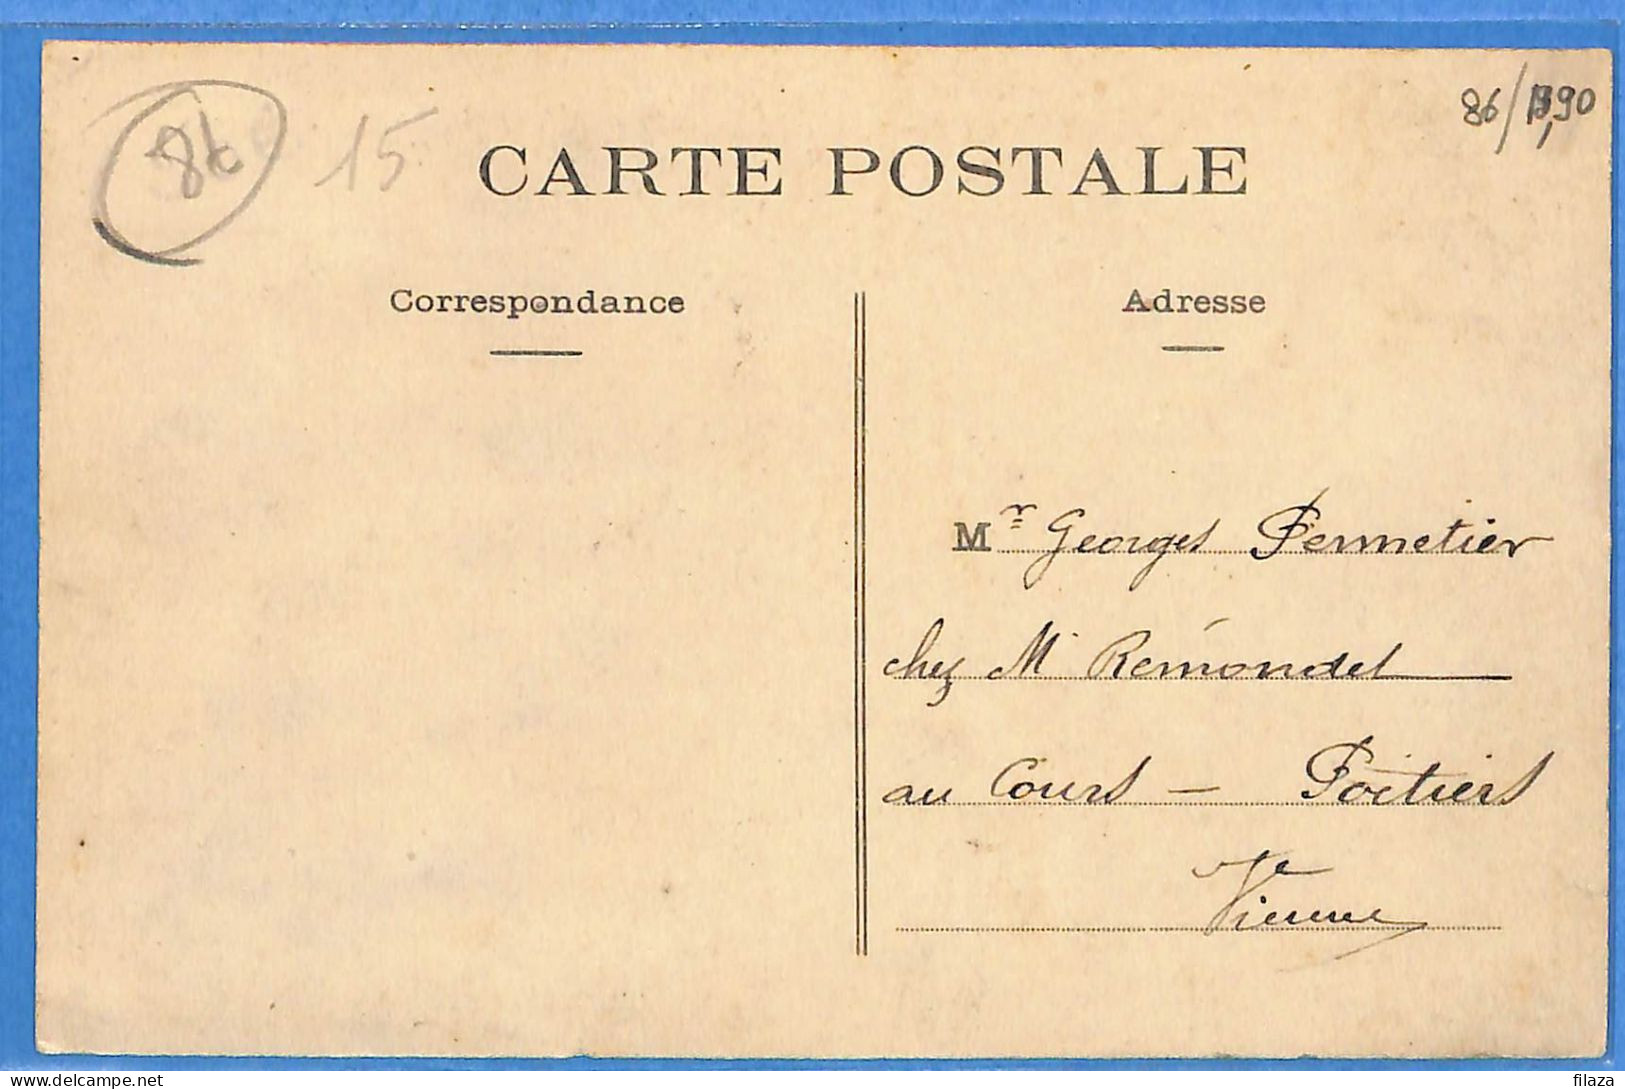 86
15
86/13,90
CARTE POSTALE
Correspondance
Adresse
Mr Georges Permetier
chez Mr Rémondet
au Cours – Poitiers
Vienne
delcampe.net
filaza